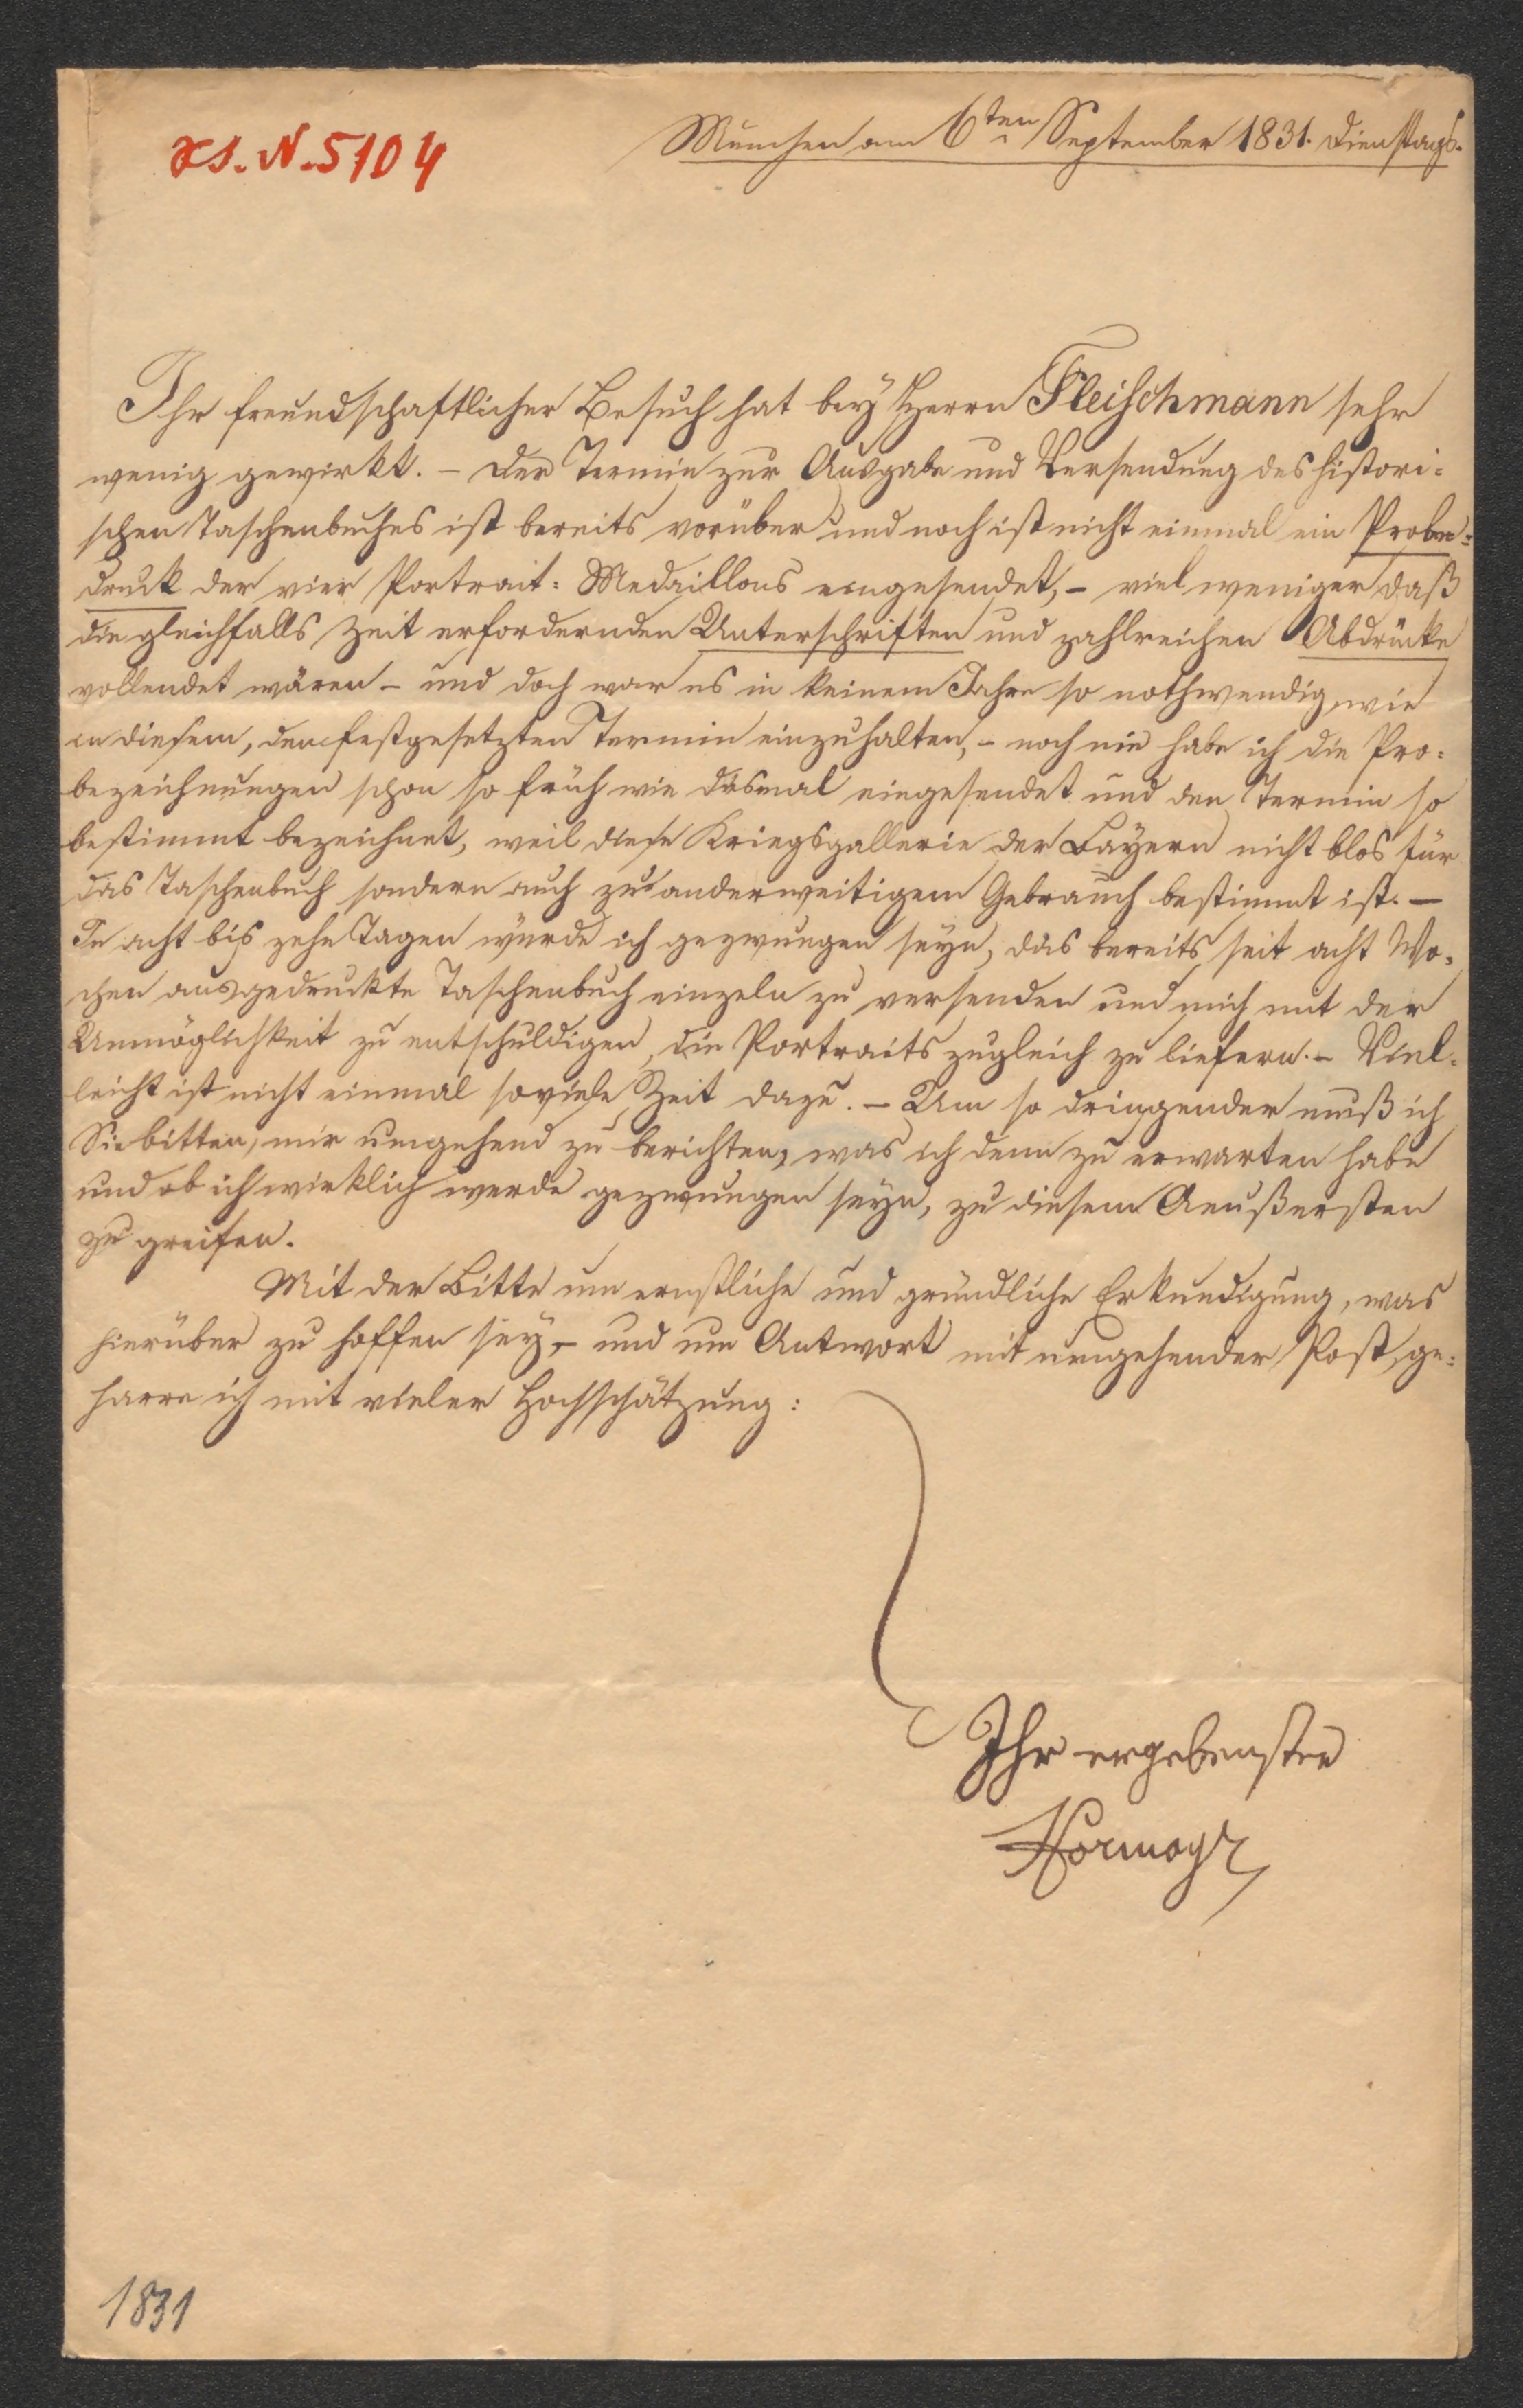 Hs. N. 5104
München am 6ten September 1831. Dienstags.
Ihr freundschaftlicher Besuch hat bey Herrn Fleischmann sehr
wenig gewirkt. – Der Termin zur Ausgabe und Versendung des histori=
schen Taschenbuches ist bereits vorüber und noch ist nicht einmal ein Probe=
druck der vier Portrait=Medaillons eingesendet, – viel weniger daß
die gleichfalls Zeit erfordernden Unterschriften und zahlreichen Abdrücke
vollendet wären – und doch war es in keinem Jahre so nothwendig wie
in diesem, den festgesetzten Termin einzuhalten, – noch nie habe ich die Pro=
bezeichnungen schon so früh wie dasmal eingesendet und den Termin so
bestimmt bezeichnet, weil diese Kriegsgallerie der Bayern nicht blos für
das Taschenbuch sondern auch zu anderweitigem Gebrauch bestimmt ist. –
In acht bis zehn Tagen würde ich gezwungen seyn, das bereits seit acht Wo=
chen ausgedruckte Taschenbuch einzeln zu versenden und mich mit der
Unmöglichkeit zu entschuldigen, die Portraits zugleich zu liefern. – Viel=
leicht ist nicht einmal soviele Zeit dazu. – Um so dringender muß ich
Sie bitten, mir umgehend zu berichten, was ich denn zu erwarten habe
und ob ich wirklich werde gezwungen seyn, zu diesem Aeußersten
zu greifen.
Mit der Bitte um ernstliche und gründliche Erkundigung, was
hierüber zu hoffen sey, – und um Antwort mit umgehender Post, ge=
harre ich mit vieler Hochschätzung:
Ihr ergebenster
Hormayr
1831